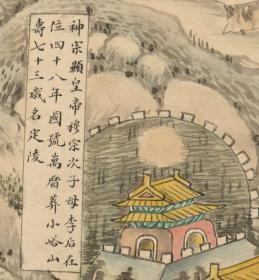 神宗顯皇帝穆宗次子母李后在
位四十八年國號萬曆葬小峪山
壽七十三歲名定陵